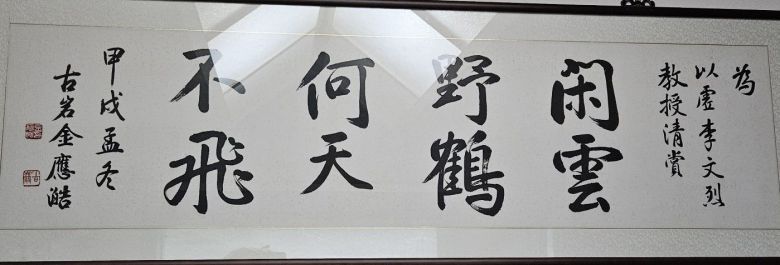 為
以虛李文烈
教授清賞
閑雲
野鶴
何天
不飛
甲戌孟冬
古岩金應澔